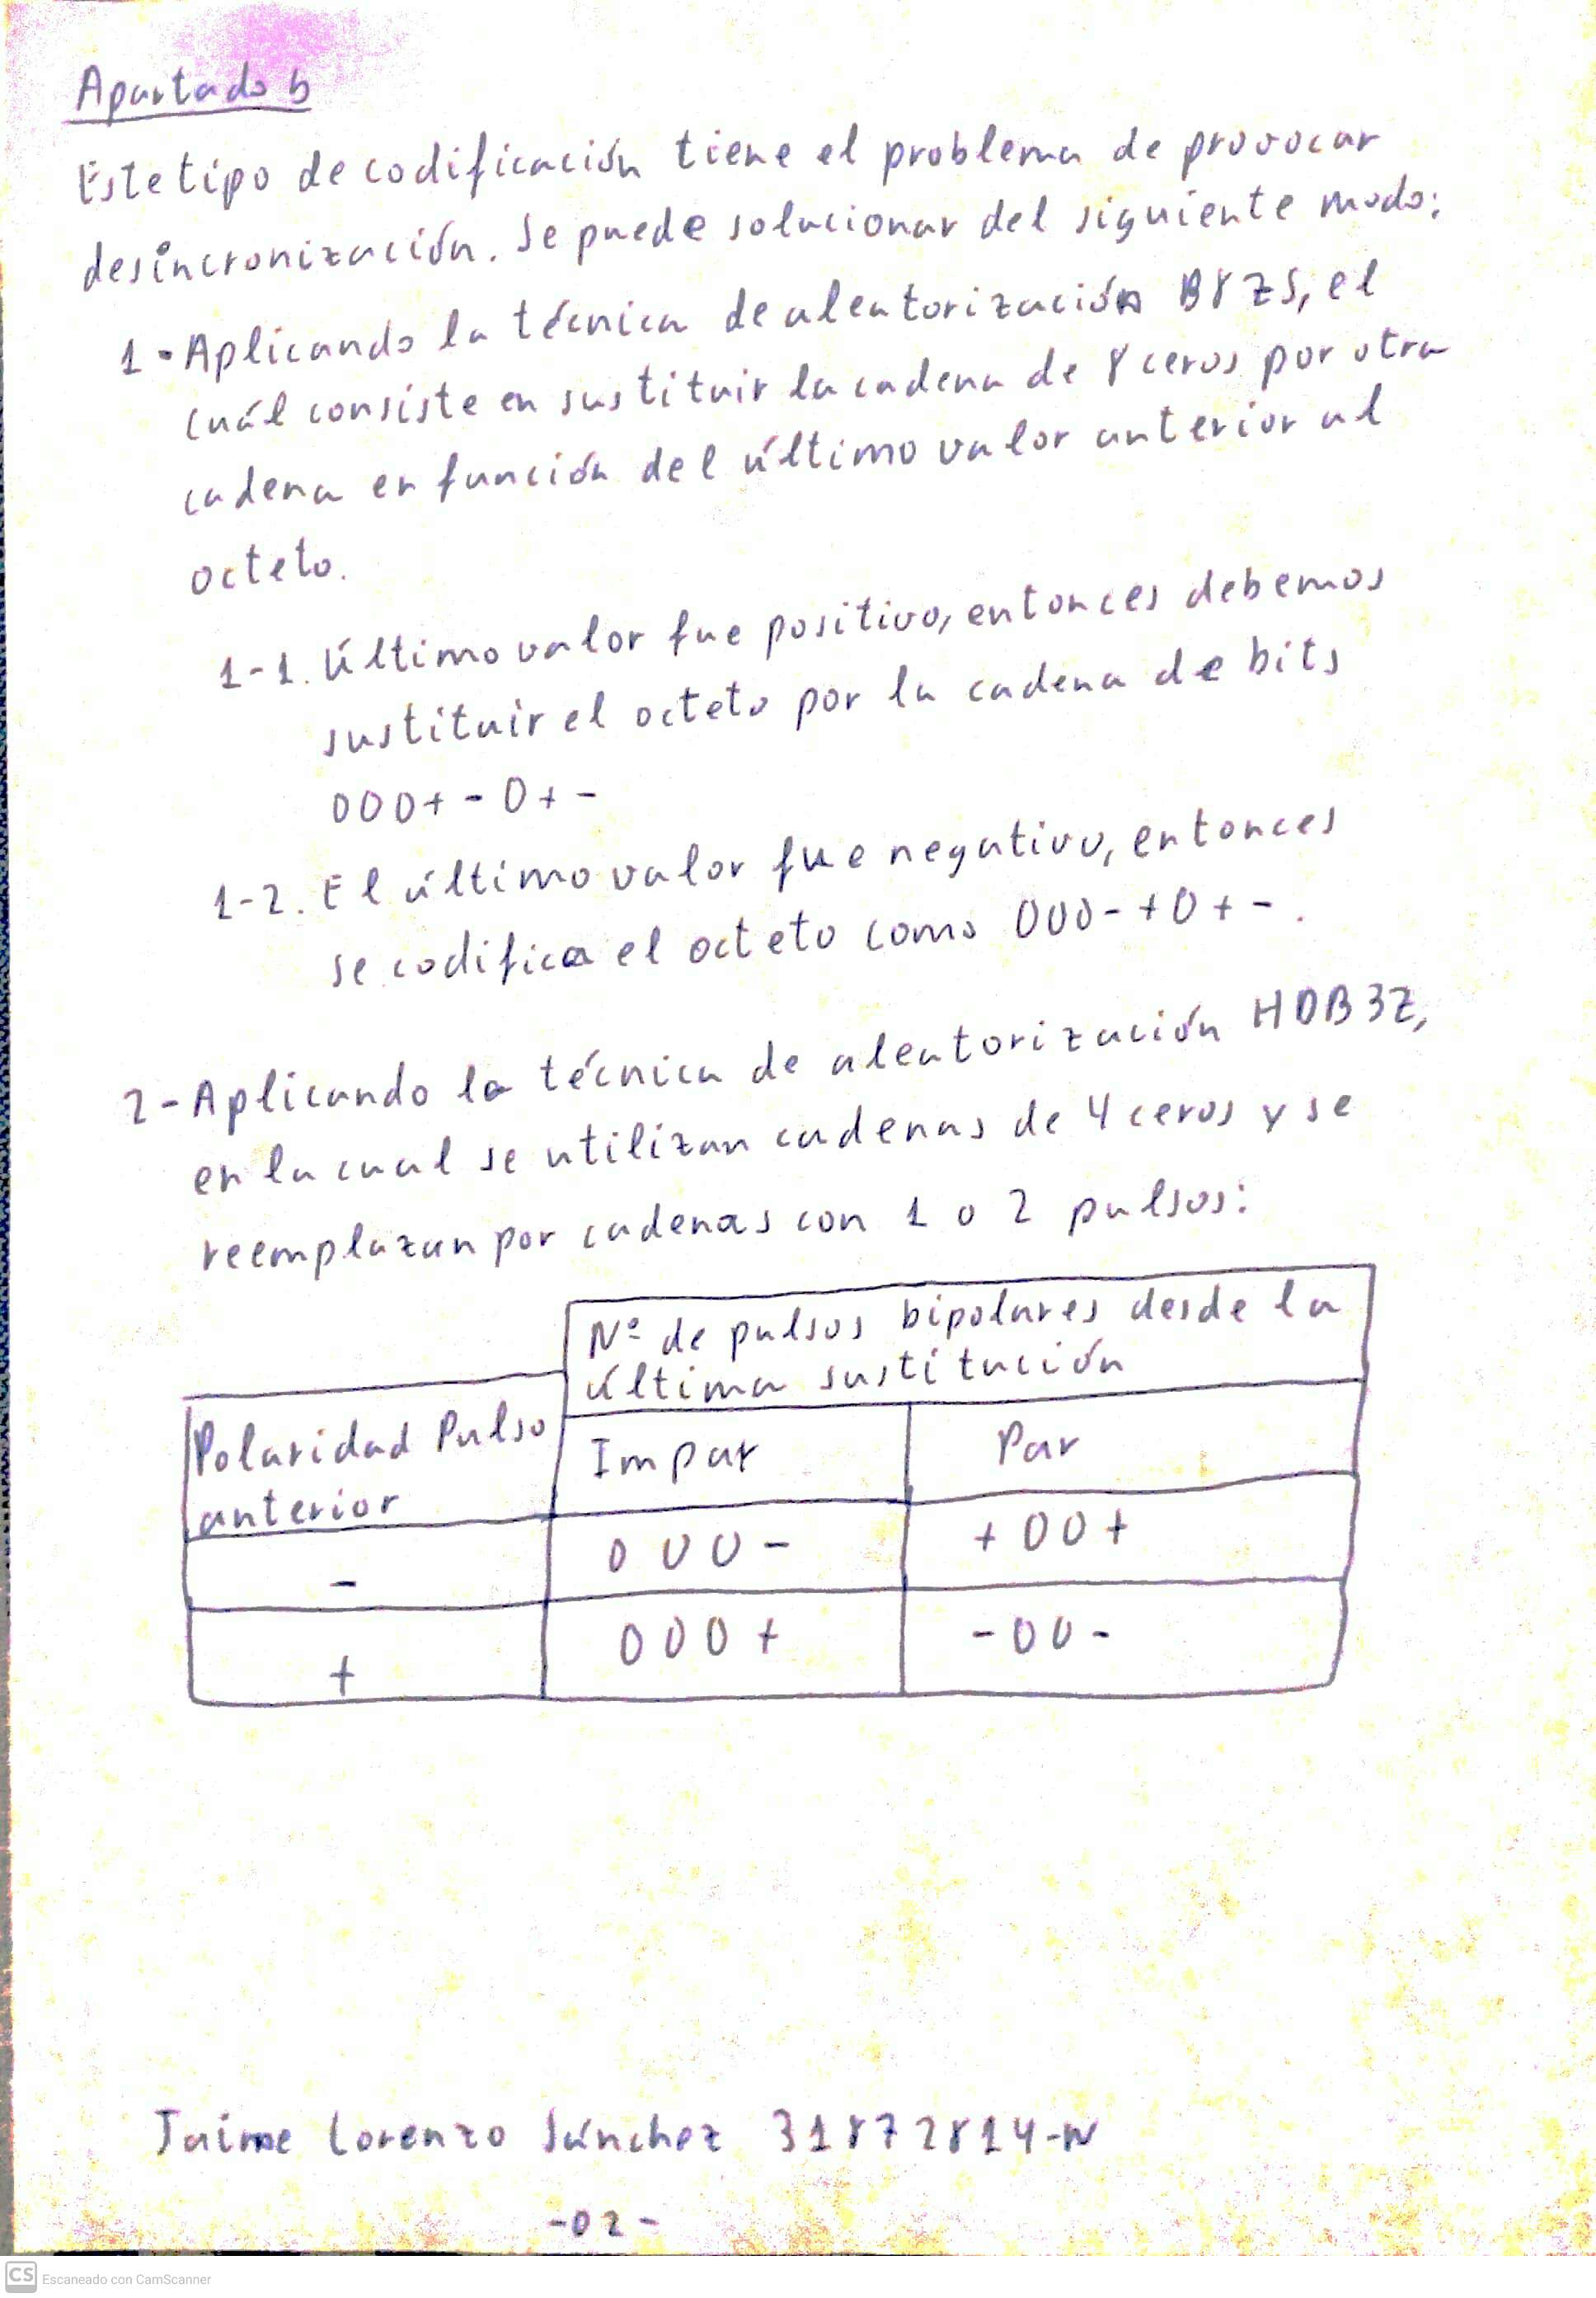 Apartado b
Este tipo de codificación tiene el problema de provocar
desincronización. Se puede solucionar del siguiente modo:
1-Aplicando la técnica de aleatorización B8ZS, el
cuál consiste en sustituir la cadena de 8 ceros por otra
cadena en función del último valor anterior al
octeto.
1-1. Último valor fue positivo, entonces debemos
sustituir el octeto por la cadena de bits
000+-0+-
1-2. El último valor fue negativo, entonces
se codifica el octeto como 000-+0+-.
2-Aplicando la técnica de aleatorización HDB3Z,
en la cual se utilizan cadenas de 4 ceros y se
reemplazan por cadenas con 1 o 2 pulsos:
Nº de pulsos bipolares desde la
última sustitución
Polaridad Pulso
anterior
Impar Par
- 000- +00+
+ 000+ -00-
Jaime Lorenzo Sánchez 31872814-N
-02-
CS Escaneado con CamScanner